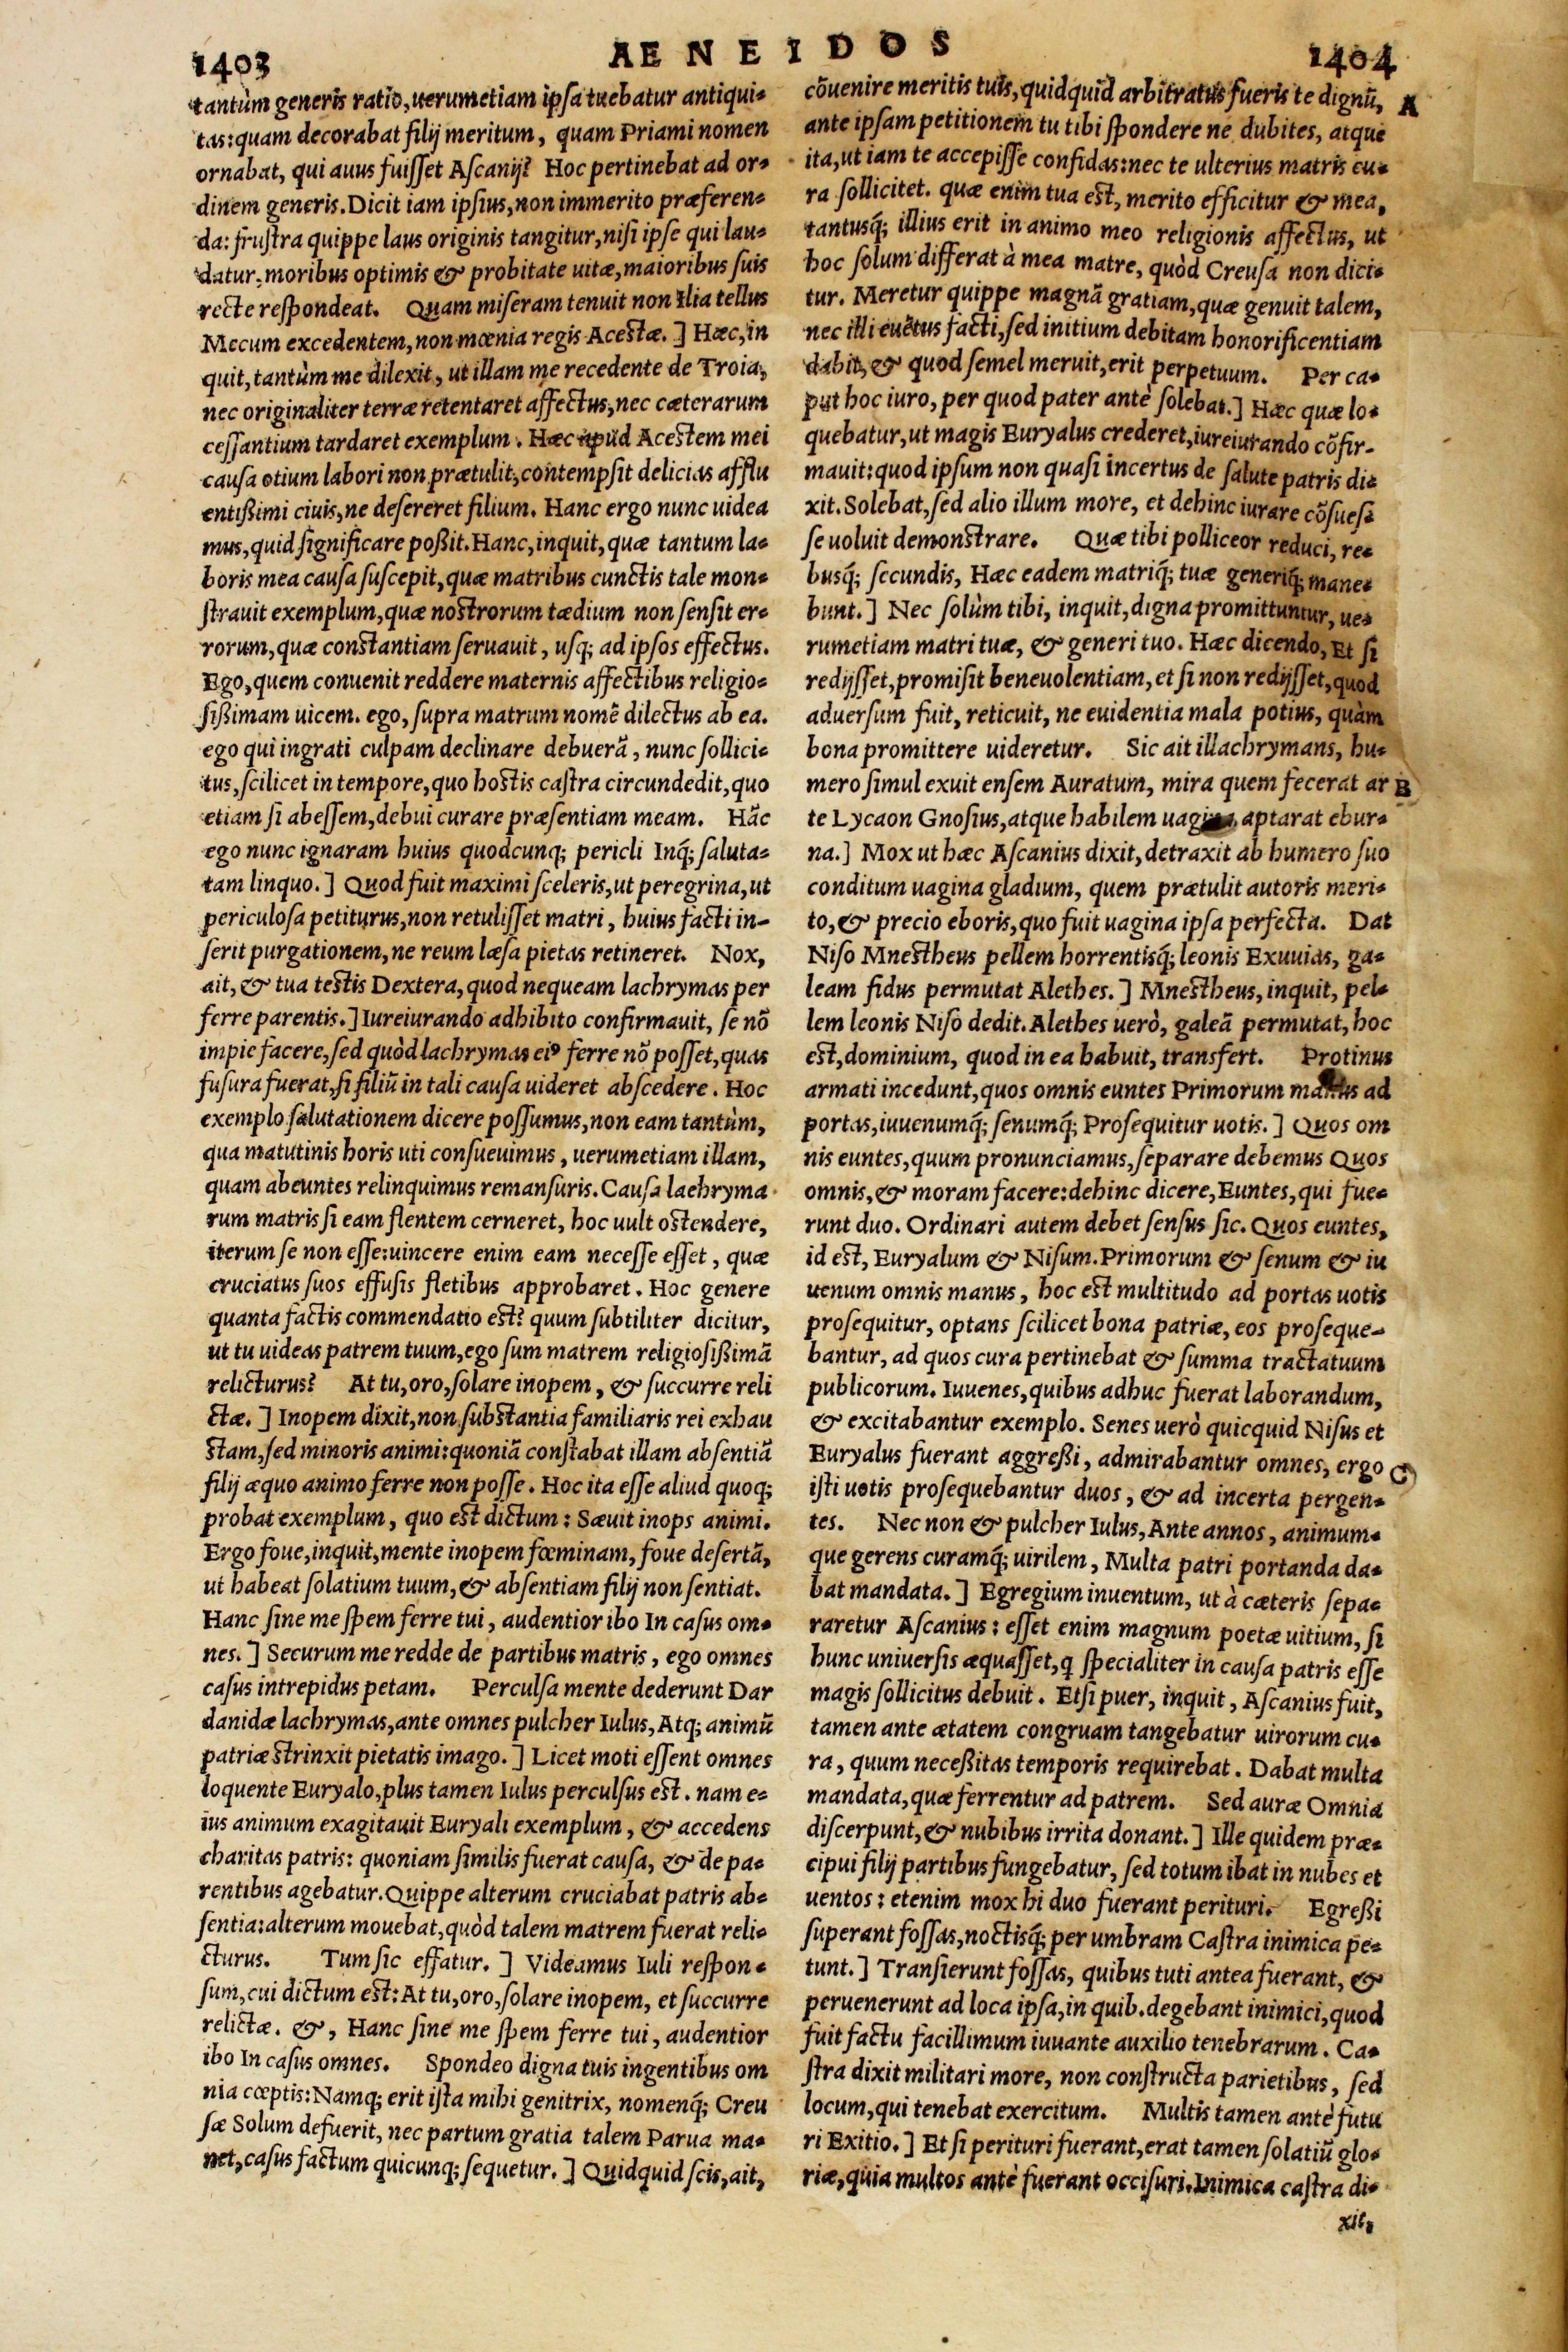 1403
AENEIDOS
1404
tantùm generis ratio, uerumetiam ipsa tuebatur antiqui-
tas: quam decorabat filij meritum, quam Priami nomen
ornabat, qui auus fuisset Ascanij? Hoc pertinebat ad or-
dinem generis. Dicit iam ipsius, non immerito præferen-
da: frustra quippe laus originis tangitur, nisi ipse qui lau-
datur, moribus optimis & probitate uitæ, maioribus suis
recte respondeat. Quam miseram tenuit non Ilia tellus
Mecum excedentem, non mœnia regis Acestæ.] Hæc, in
quit, tantùm me dilexit, ut illam me recedente de Troia,
nec originaliter terræ retentaret affectus, nec cæterarum
cessantium tardaret exemplum. Hæc apud Acestem mei
causa otium labori non prætulit, contempsit delicias afflu
entißimi ciuis, ne desereret filium. Hanc ergo nunc uidea
mus, quid significare poßit. Hanc, inquit, quæ tantum la-
boris mea causa suscepit, quæ matribus cunctis tale mon-
strauit exemplum, quæ nostrorum tædium non sensit er-
rorum, quæ constantiam seruauit, usq; ad ipsos effectus.
Ego, quem conuenit reddere maternis affectibus religio-
sißimam uicem. ego, supra matrum nomẽ dilectus ab ea.
ego qui ingrati culpam declinare debuerã, nunc sollici-
tus, scilicet in tempore, quo hostis castra circundedit, quo
etiam si abessem, debui curare præsentiam meam. Hãc
ego nunc ignaram huius quodcunq; pericli Inq́; saluta-
tam linquo.] Quod fuit maximi sceleris, ut peregrina, ut
periculosa petiturus, non retulisset matri, huius facti in-
serit purgationem, ne reum læsa pietas retineret. Nox,
ait, & tua testis Dextera, quod nequeam lachrymas per
ferre parentis.] Iureiurando adhibito confirmauit, se nõ
impie facere, sed quòd lachrymas eiꝰ ferre nõ posset, quas
fusura fuerat, si filiũ in tali causa uideret abscedere. Hoc
exemplo salutationem dicere possumus, non eam tantùm,
qua matutinis horis uti consueuimus, uerumetiam illam,
quam abeuntes relinquimus remansuris. Causa lachryma
rum matris si eam flentem cerneret, hoc uult ostendere,
iterum se non esse: uincere enim eam necesse esset, quæ
cruciatus suos effusis fletibus approbaret. Hoc genere
quanta factis commendatio est? quum subtiliter dicitur,
ut tu uideas patrem tuum, ego sum matrem religiosißimã
relicturus? At tu, oro, solare inopem, & succurre reli
ctæ.] Inopem dixit, non substantia familiaris rei exhau
stam, sed minoris animi: quoniã constabat illam absentiã
filij æquo animo ferre non posse. Hoc ita esse aliud quoq;
probat exemplum, quo est dictum: Sæuit inops animi.
Ergo foue, inquit, mente inopem fœminam, foue desertã,
ut habeat solatium tuum, & absentiam filij non sentiat.
Hanc sine me spem ferre tui, audentior ibo In casus om-
nes.] Securum me redde de partibus matris, ego omnes
casus intrepidus petam. Perculsa mente dederunt Dar
danidæ lachrymas, ante omnes pulcher Iulus, Atq; animũ
patriæ strinxit pietatis imago.] Licet moti essent omnes
loquente Euryalo, plus tamen Iulus perculsus est. nam e-
ius animum exagitauit Euryali exemplum, & accedens
charitas patris: quoniam similis fuerat causa, & de pa-
rentibus agebatur. Quippe alterum cruciabat patris ab-
sentia: alterum mouebat, quòd talem matrem fuerat reli-
cturus. Tum sic effatur.] Videamus Iuli respon-
sum, cui dictum est: At tu, oro, solare inopem, et succurre
relictæ. &, Hanc sine me spem ferre tui, audentior
ibo In casus omnes. Spondeo digna tuis ingentibus om
nia cœptis: Namq; erit ista mihi genitrix, nomenq́; Creu
sæ Solum defuerit, nec partum gratia talem Parua ma-
net, casus factum quicunq; sequetur.] Quidquid scis, ait,
cõuenire meritis tuis, quidquid arbitratus fueris te dignũ,
A
ante ipsam petitionem tu tibi spondere ne dubites, atque
ita, ut iam te accepisse confidas: nec te ulterius matris cu-
ra sollicitet. quæ enim tua est, merito efficitur & mea,
tantusq́; illius erit in animo meo religionis affectus, ut
hoc solum differat à mea matre, quòd Creusa non dici-
tur. Meretur quippe magnã gratiam, quæ genuit talem,
nec illi euẽtus facti, sed initium debitam honorificentiam
dabit, & quod semel meruit, erit perpetuum. Per ca-
put hoc iuro, per quod pater antè solebat.] Hæc quæ lo-
quebatur, ut magis Euryalus crederet, iureiurando cõfir-
mauit: quod ipsum non quasi incertus de salute patris di-
xit. Solebat, sed alio illum more, et dehinc iurare cõsues-
se uoluit demonstrare. Quæ tibi polliceor reduci, re-
busq́; secundis, Hæc eadem matriq́; tuæ generiq́; mane-
bunt.] Nec solùm tibi, inquit, digna promittuntur, ue-
rumetiam matri tuæ, & generi tuo. Hæc dicendo, Et si
redijsset, promisit beneuolentiam, et si non redijsset, quod
aduersum fuit, reticuit, ne euidentia mala potius, quàm
bona promittere uideretur. Sic ait illachrymans, hu-
mero simul exuit ensem Auratum, mira quem fecerat ar
B
te Lycaon Gnosius, atque habilem uagina aptarat ebur-
na.] Mox ut hæc Ascanius dixit, detraxit ab humero suo
conditum uagina gladium, quem prætulit autoris meri-
to, & precio eboris, quo fuit uagina ipsa perfecta. Dat
Niso Mnestheus pellem horrentisq́; leonis Exuuias, ga-
leam fidus permutat Alethes.] Mnestheus, inquit, pel-
lem leonis Niso dedit. Alethes uerò, galeã permutat, hoc
est, dominium, quod in ea habuit, transfert. Protinus
armati incedunt, quos omnis euntes Primorum manus ad
portas, iuuenumq́; senumq́; Prosequitur uotis.] Quos om
nis euntes, quum pronunciamus, separare debemus Quos
omnis, & moram facere: dehinc dicere, Euntes, qui fue-
runt duo. Ordinari autem debet sensus sic. Quos euntes,
id est, Euryalum & Nisum. Primorum & senum & iu
uenum omnis manus, hoc est multitudo ad portas uotis
prosequitur, optans scilicet bona patriæ, eos proseque-
bantur, ad quos cura pertinebat & summa tractatuum
publicorum. Iuuenes, quibus adhuc fuerat laborandum,
& excitabantur exemplo. Senes uerò quicquid Nisus et
Euryalus fuerant aggreßi, admirabantur omnes, ergo
C
isti uotis prosequebantur duos, & ad incerta pergen-
tes. Nec non & pulcher Iulus, Ante annos, animum-
que gerens curamq́; uirilem, Multa patri portanda da-
bat mandata.] Egregium inuentum, ut à cæteris sepa-
raretur Ascanius: esset enim magnum poetæ uitium, si
hunc uniuersis æquasset, ꝗ specialiter in causa patris esse
magis sollicitus debuit. Etsi puer, inquit, Ascanius fuit,
tamen ante ætatem congruam tangebatur uirorum cu-
ra, quum neceßitas temporis requirebat. Dabat multa
mandata, quæ ferrentur ad patrem. Sed auræ Omnia
discerpunt, & nubibus irrita donant.] Ille quidem præ-
cipui filij partibus fungebatur, sed totum ibat in nubes et
uentos: etenim mox hi duo fuerant perituri. Egreßi
superant fossas, noctisq́; per umbram Castra inimica pe-
tunt.] Transierunt fossas, quibus tuti antea fuerant, &
peruenerunt ad loca ipsa, in quib. degebant inimici, quod
fuit factu facillimum iuuante auxilio tenebrarum. Ca-
stra dixit militari more, non constructa parietibus, sed
locum, qui tenebat exercitum. Multis tamen antè futu
ri Exitio.] Et si perituri fuerant, erat tamen solatiũ glo-
riæ, quia multos antè fuerant occisuri. Inimica castra di-
xit,